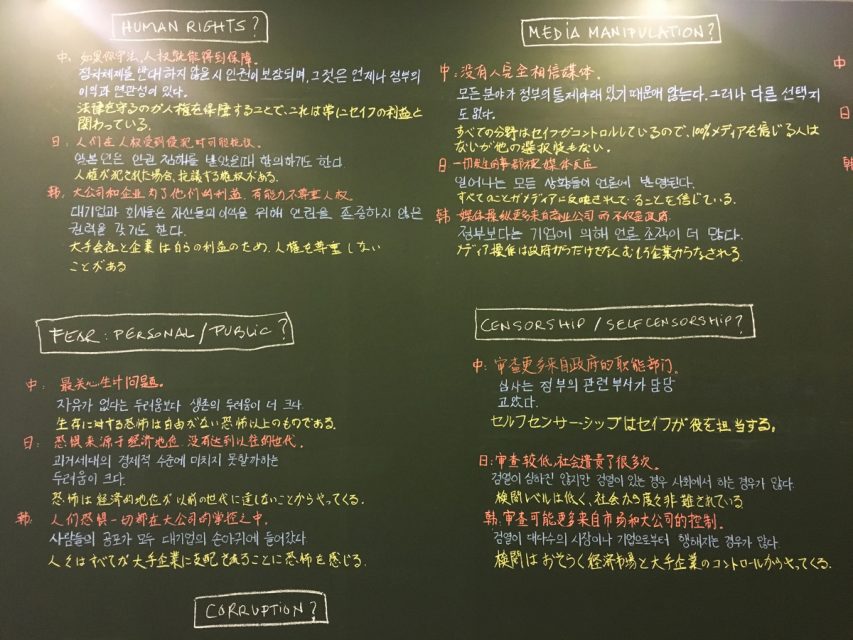 HUMAN RIGHTS?
中: 如果你守法,人权就能得到保障。
정치체제를 반대하지 않을 시 인권이 보장되며, 그것은 언제나 정부의
이익과 연관성이 있다.
法律を守るのが人権を保障することで、これは常にセイフの利益と
関わっている。
日: 人们在人权受到侵犯时可能抗议。
일본인은 인권 침해를 받았을때 항의하기도 한다
人権が犯された場合、抗議する権利がある。
韩: 大公司和企业为了他们的利益,有能力不尊重人权
대기업과 회사들은 자신들의 이익을 위해 인권을 존중하지 않은
권력을 갖기도 한다.
大手会社と企業は自らの利益のため、人権を尊重しない
ことがある
MEDIA MANIPULATION?
中: 没有人完全相信媒体。
모든 분야가 정부의 통제아래 있기 때문에 않는다. 그러나 다른 선택지
도 없다.
すべての分野はセイフがコントロールしているので、100%メディアを信じる人は
ないが他の選択肢もない。
日 一切发生的事都被媒体反应
일어나는 모든 상황들이 언론에 반영된다.
すべてのことがメディアに反映されていることを信じている。
韩 媒体操纵更多来自商业公司而不仅是政府.
정부보다는 기업에 의해 언론 조작이 더 많다.
メディア操作は政府からだけでなくむしろ企業からなされる
中
韩:
FEAR: PERSONAL/PUBLIC?
中: 最关心生计问题。
자유가 없다는 두려움보다 생존의 두려움이 더 크다.
生存に対する恐怖は自由がない恐怖以上のものである。
日: 恐惧来源于经济地位,没有达到以往的世代。
과거세대의 경제적 수준에 미치지 못할까하는
두려움이 크다.
恐怖は経済的地位が以前の世代に達しないことからやってくる。
韩: 人们恐惧一切都在大公司的掌控之中。
사람들의 공포가 모두 대기업의 손아귀에 들어갔다
人々はすべてが大手企業に支配されることに恐怖を感じる.
CENSORSHIP/SELFCENSORSHIP?
中: 审查更多来自政府的职能部门。
심사는 정부의 관련부서가 담당
セルフセンサーシップはセイフが役を担当する。
日: 审查较低,社会谴责了很多次。
검열이 심하진 않지만 검열이 있는 경우 사회에서 하는 경우가 많다
検閲レベルは低く、社会から度々非難されている
韩: 审查可能更多来自市场和大公司的控制.
검열이 대다수의 시장이나 기업으로부터 행해지는 경우가 많다.
検閲はおそらく経済市場と大手企業のコントロールからやってくる.
CORRUPTION?